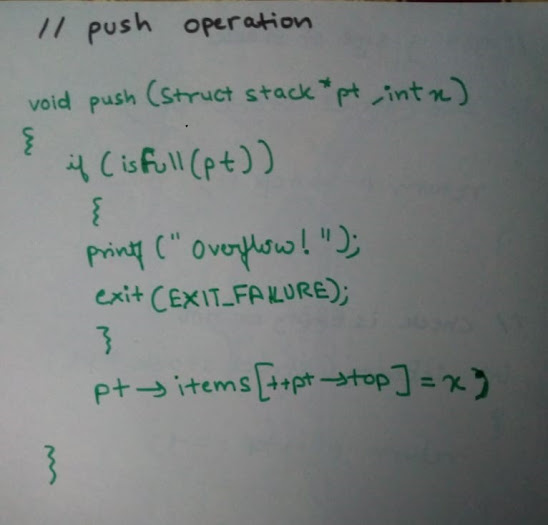 // push operation
void push (struct stack * pt , int x)
{
if (isFull (pt))
{
printf (" overflow! ");
exit (EXIT_FAILURE);
}
pt → items [++pt → top] = x ;
}